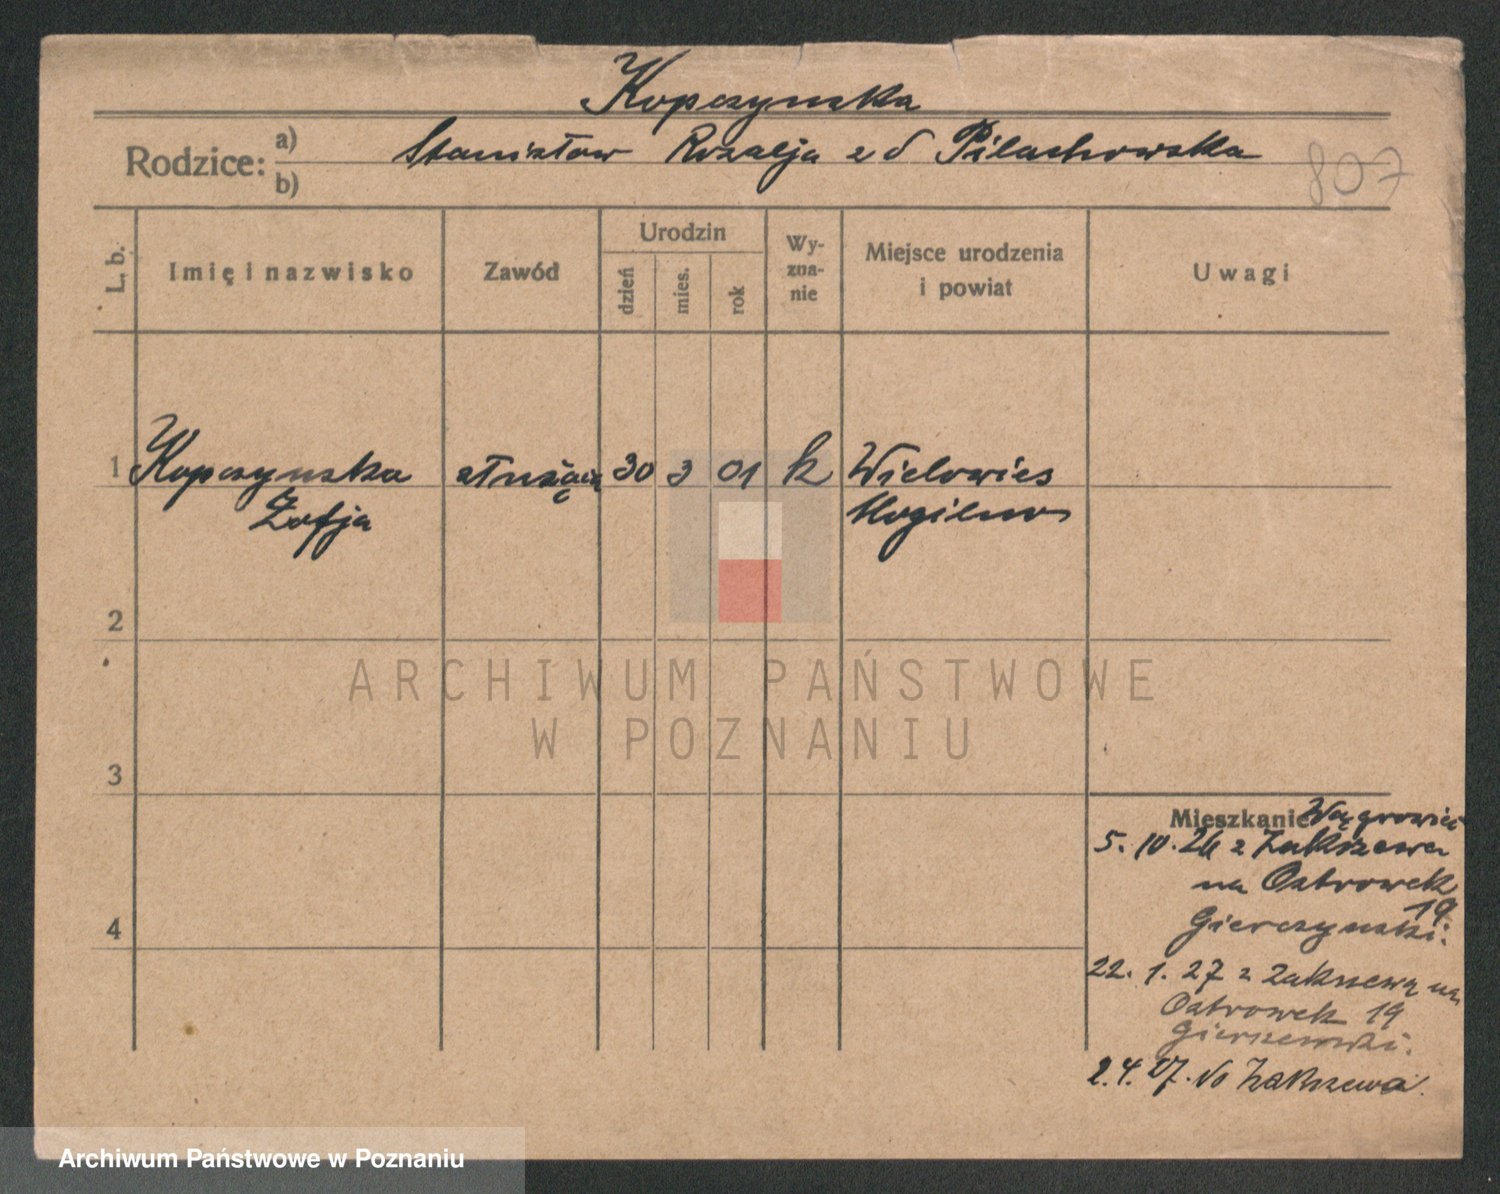 Kopczynska
Rodzice: a) Stanisław Rozalja z d Pilachowska
b)
807
L. b.
Imię i nazwisko
Zawód
Urodzin
dzień
mies.
rok
Wy-
zna-
nie
Miejsce urodzenia
i powiat
Uwagi
1 Kopczynska służąca 30 3 01 k Wielowies
Zofja Mogilno
2
3
4
Mieszkanie Wągrowiec
5. 10. 26 z Zakrzewa
na Ostrowek
19
Gierczynski.
22. 1. 27 z Zakrzewa na
Ostrowek 19
2. 4. 27. do Zakrzewa.
ARCHIWUM PAŃSTWOWE
W POZNANIU
Archiwum Państwowe w Poznaniu